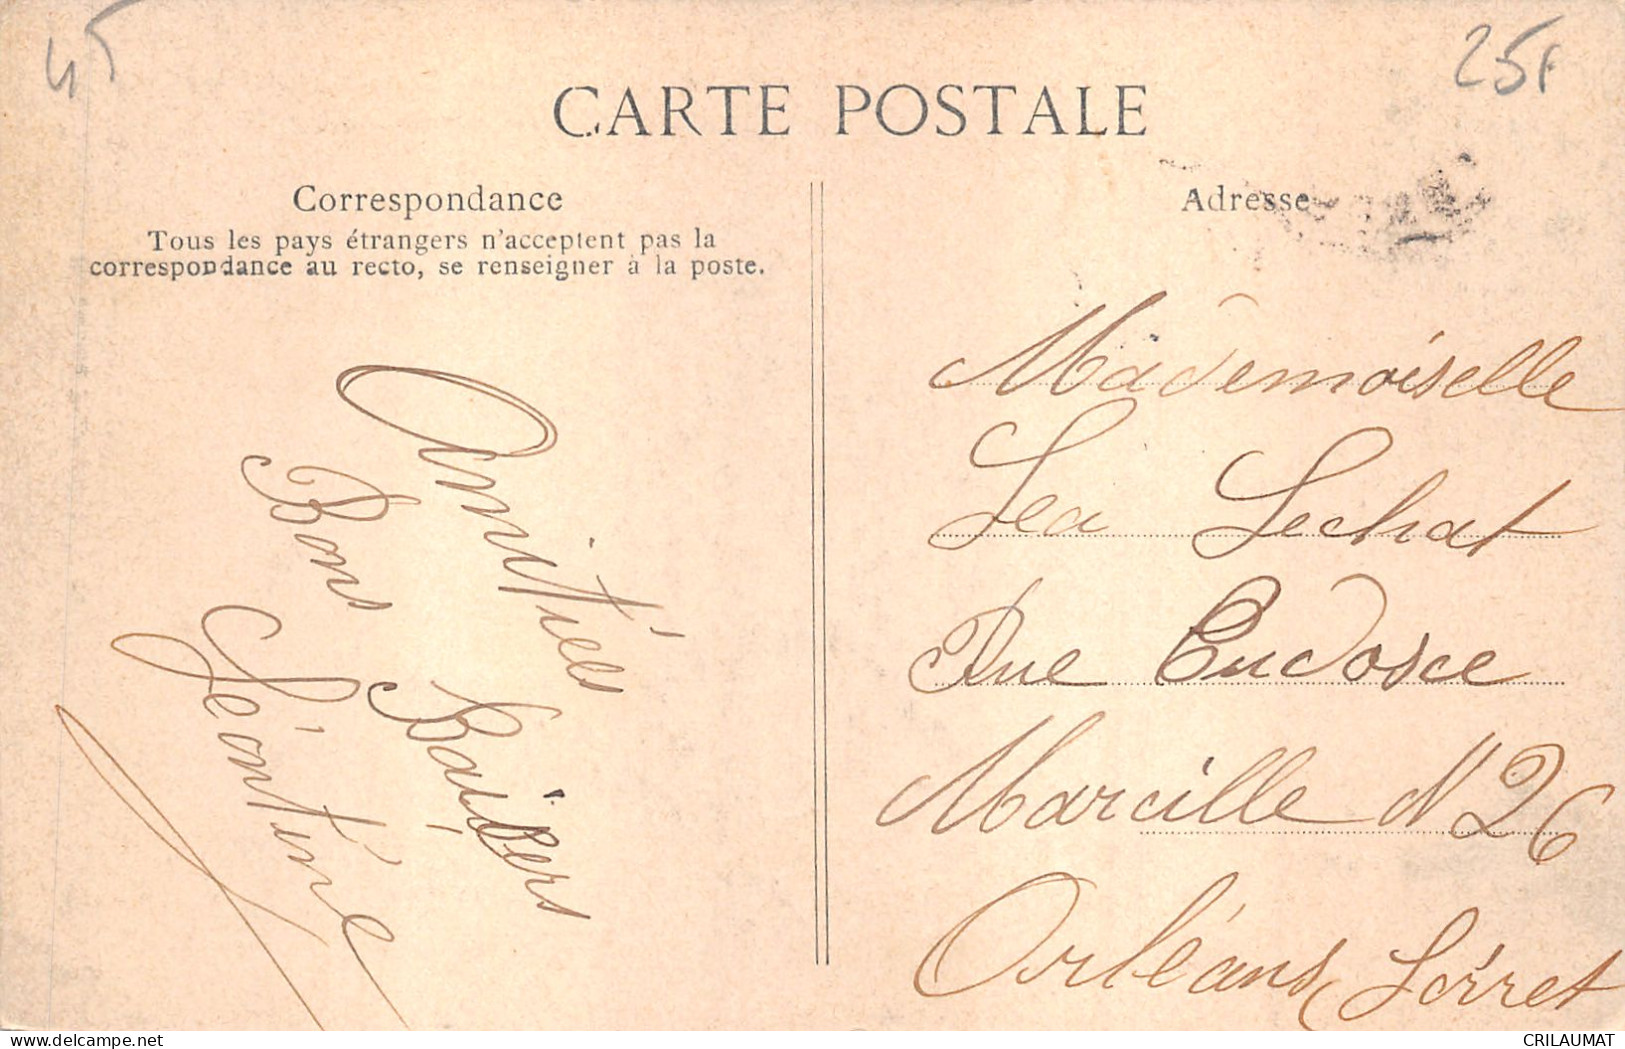 45
25F
CARTE POSTALE
Correspondance
Tous les pays étrangers n'acceptent pas la
correspondance au recto, se renseigner à la poste.
Amitiées
Bons Baisers
Léontine
Adresse
Mademoiselle
Lea Lechat
Rue Eudosce
Marcille N 26
Orléans Loirret
delcampe.net
CRILAUMAT